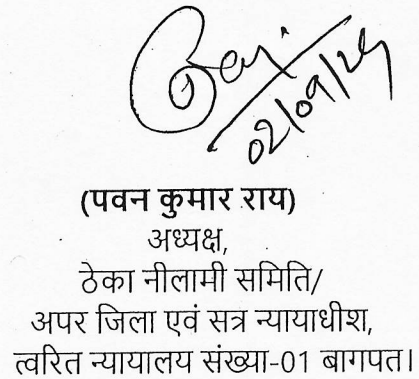 02/09/24
(पवन कुमार राय)
अध्यक्ष,
ठेका नीलामी समिति/
अपर जिला एवं सत्र न्यायाधीश,
त्वरित न्यायालय संख्या-01 बागपत।